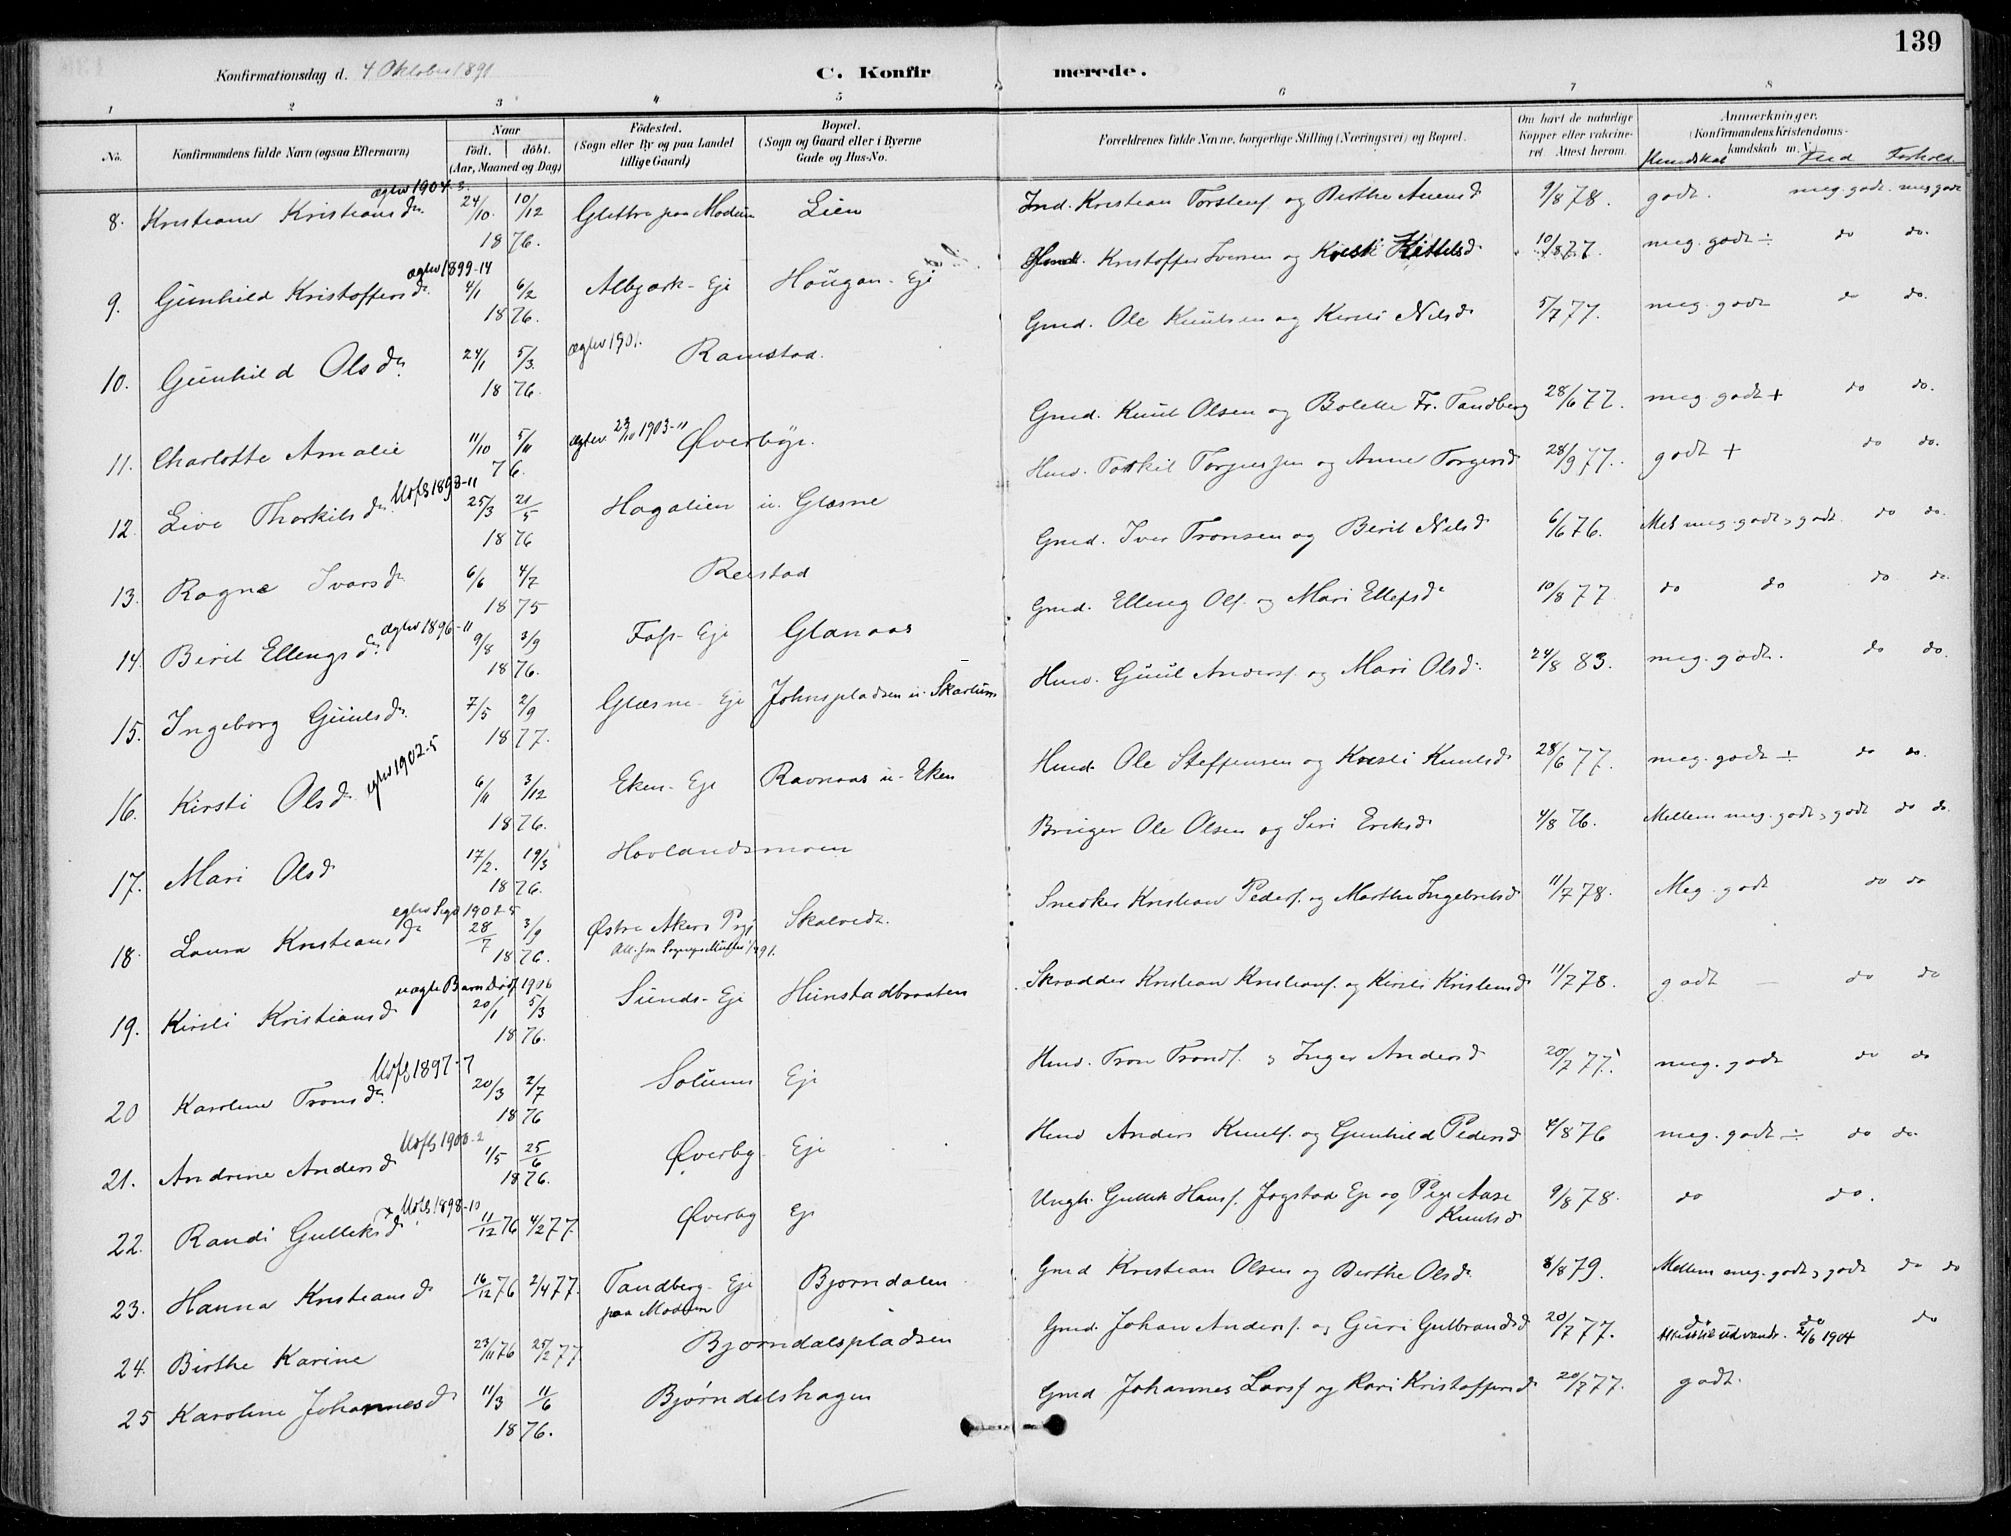 139
Konfirmationsdag d. 4 Oktober 1891
C. Konfirmerede.
1 2 3 4 5 6 7 8
No.
Konfirmandens fulde Navn (ogsaa Efternavn)
Naar
födt. döbt.
(Aar, Maaned og Dag)
Födested.
(Sogn eller By og paa Landet
tillige Gaard)
Bopæl.
(Sogn og Gaard eller i Byerne
Gade og Hus-No.
Forældrenes fulde Navne, borgerlige Stilling (Næringsvei) og Bopæl.
Om havt de naturlige
Kopper eller vakcine-
ret. Attest herom.
Anmærkninger.
(Konfirmandens Kristendoms-
kundskab m. V.)
Kundskab Flid Forhold
ægtev 1904-3
8. Kristiane Kristiansdr. 24/10 10/12 1876. Glettre paa Modum Lien Ind. Kristian Torstens. og Berthe Amunsd 9/8 78. godt. meg. godt. meg godt
ægtev 1899-14
9. Gunhild Kristoffersdr. 4/1 6/2 1876. Albjerk-Eje Haugan-Eje Kristoffer Iversen og Kirsti Kittelsd. 10/8 77. meg. godt ÷ do do.
10. Gunhild Olsdr. 24/1 5/3. 1876. ægtev 1901. Ramstad. Gmd. Ole Knutsen og Kirsti Nilsd 5/7 77. meg. godt do do.
11. Charlotte Amalie 11/10 5/11 76. ægtev 23/10 1903-11 Øverbye. Gmd. Knut Olsen og Bolette Fr. Tandberg 28/6 77. meg godt + do do.
Uofs 1893-11
12. Live Thorkilsdr. 25/3 21/5 1876 Hagalien u. Glæsne Hmd. Torkil Torgersen og Anne Torgersd 28/9 77. godt + do do.
13. Ragne Ivarsdr 6/6 4/7 1875 Reistad Gmd. Iver Tronsen og Berit Nilsd 6/6 76. Mel meg. godt & godt. do do.
ægtev 1896-11
14. Berit Ellingsdr. 9/8 3/9 1876. Foss-Eje Glanaas Gmd. Elling Ols. og Mari Ellefsdr 10/8 77 do do do do
15. Ingeborg Guulsdr. 7/5 2/9 1877. Glæsne-Eje Johnspladsen u. Skartum Hmd. Guul Anders. og Mari Olsd. 24/8 83. meg. godt. do do.
egtev 1902-5
16. Kirsti Olsdr 6/11 3/12 1876. Eken-Eje Ravnaas u. Eken Hmd. Ole Steffensen og Kirsti Knutsd. 28/6 77. meg. godt ÷ do do.
17. Mari Olsd. 17/2. 19/3 1876. Hovlandsmoen Bruger Ole Olsen og Siri Eriksd. 4/8 76. Mellem meg. godt & godt do do.
egtev Sigd 1902-5
18. Laura Kristiansdr 28/7 3/9 1876. Østre Akers Prgj Skalredt. Snedker Kristian Peders. og Marthe Ingebretsd 11/7 78. Meg. godt do do
uægte Barn død 1906
19. Kirsti Kristiansd. 20/1 5/3 1876. Sunds-Eje Hunstadbraaten Skrædder Kristian Kristians. og Kirsti Kristensd 11/7 78. godt do do
Uofs 1897-7
20 Karoline Tronsdr. 20/3 2/7 1876 Solums Eje Hmd. Tron Tronds. & Inger Andersd 20/7 77. meg. godt do do
Uofs 1900-2
21. Andrine Andersd. 1/5 25/6 1876. Øverby Eje Hmd Anders Knuts. og Gunhild Pedersd 4/8 76 meg. godt ÷ do do.
Uofs 1898-10
22. Randi Gulleksd. 11/12 76 4/2 77 Øverby Eje Ungk. Gullik Hans. Jogstad Eje og Pige Aase Knutsd 9/8 78. do do.
23. Hanna Kristiansd. 16/12 76 2/4 77. Tandberg-Eje paa Modum Bjorndalen Gmd Kristian Olsen og Berthe Olsd. 8/8 79. Mellem meg. godt & godt do do
24. Birthe Karine 23/11 76 25/2 77 Bjorndalspladsen Gmd. Johan Anders. og Guri Gulbrandsd 20/7 77. do do do
Attest til udvandr. 2/6 1904
25 Karoline Johannesd. 11/3 11/6 1876. Bjørndalshagen Gmd Johannes Lars. og Kari Kristoffersd. 20/7 77. godt.